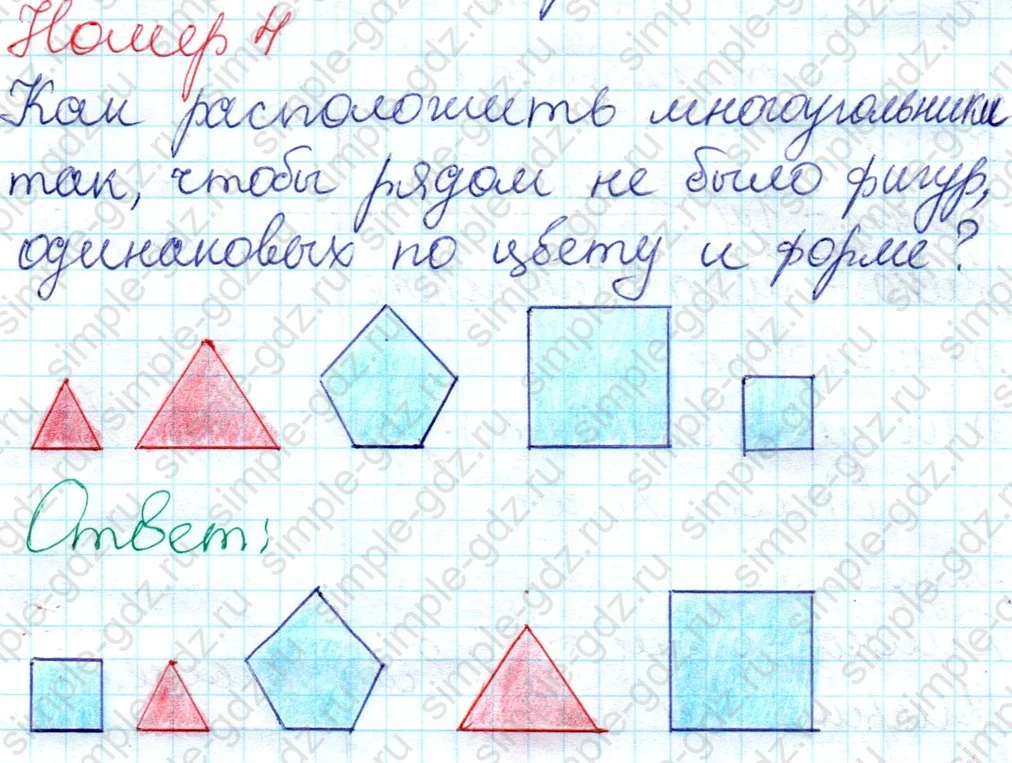 Номер 4
Как расположить многоугольники
так, чтобы рядом не было фигур,
одинаковых по цвету и форме?
Ответ:
simple-gdz.ru